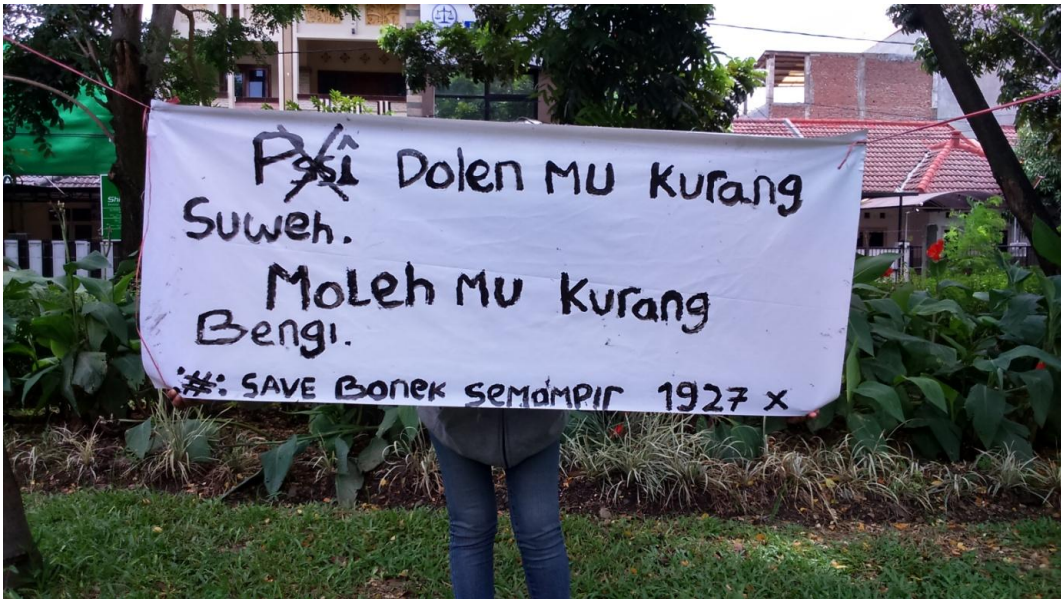 Pssi Dolen MU Kurang
Suweh.
Moleh MU Kurang
Bengi.
:#: SAVE Bonek Semampir 1927 x